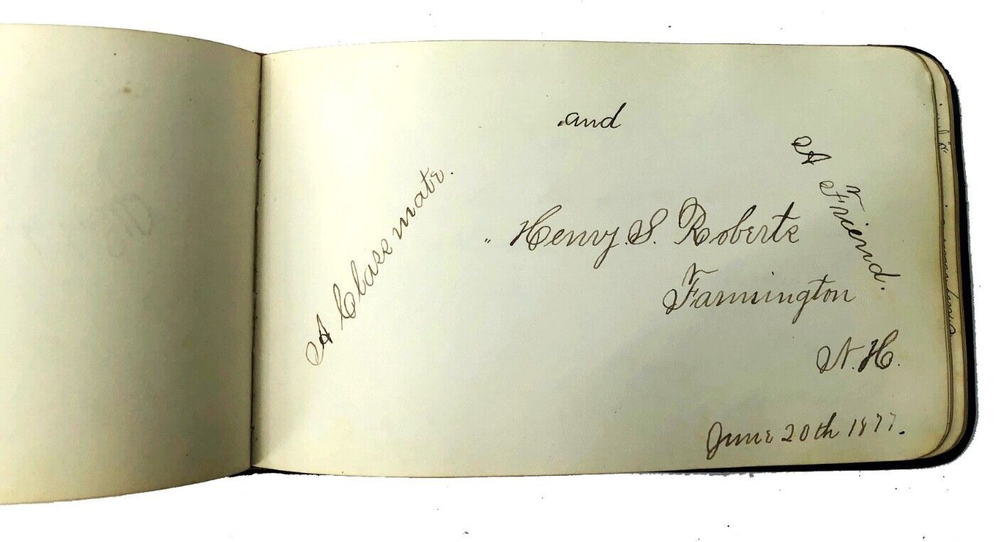 A Classmate.
and
A Friend.
" Henry S. Roberts
Farmington
N.H.
June 20th 1877.